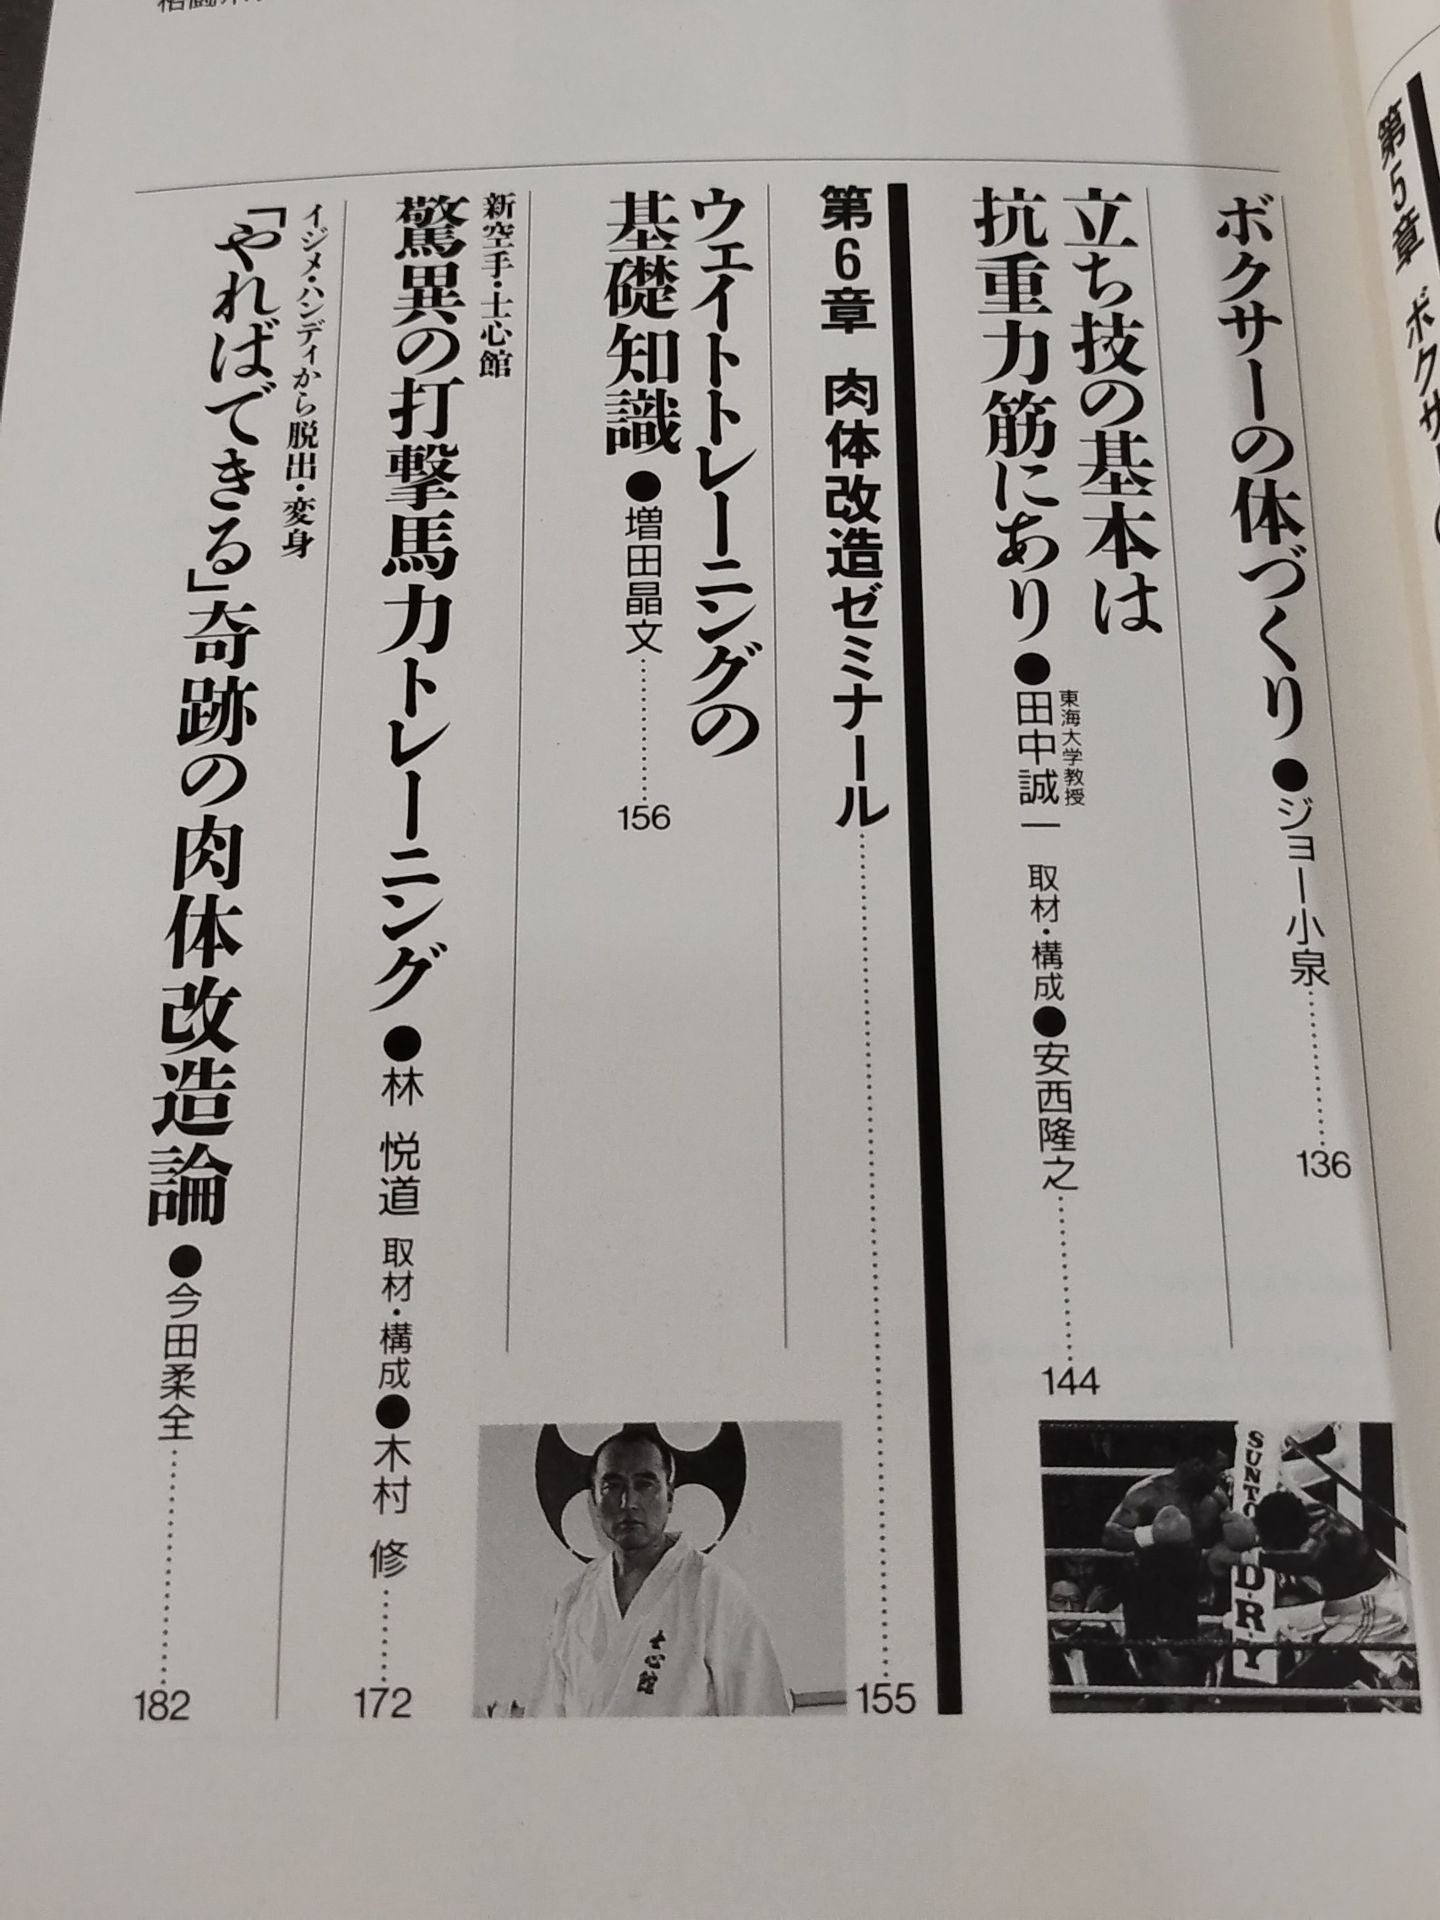 第5章 ボクサー
ボクサーの体づくり●ジョー小泉……136
立ち技の基本は
抗重力筋にあり●東海大学教授 田中誠一 取材・構成●安西隆之……144
第6章 肉体改造ゼミナール……155
ウェイトトレーニングの
基礎知識●増田晶文……156
新空手・士心館
驚異の打撃馬力トレーニング●林 悦道 取材・構成●木村 修……172
イジメ・ハンディから脱出・変身
「やればできる」奇跡の肉体改造論●今田柔全……182
SUNTO
D・R・Y
士心館